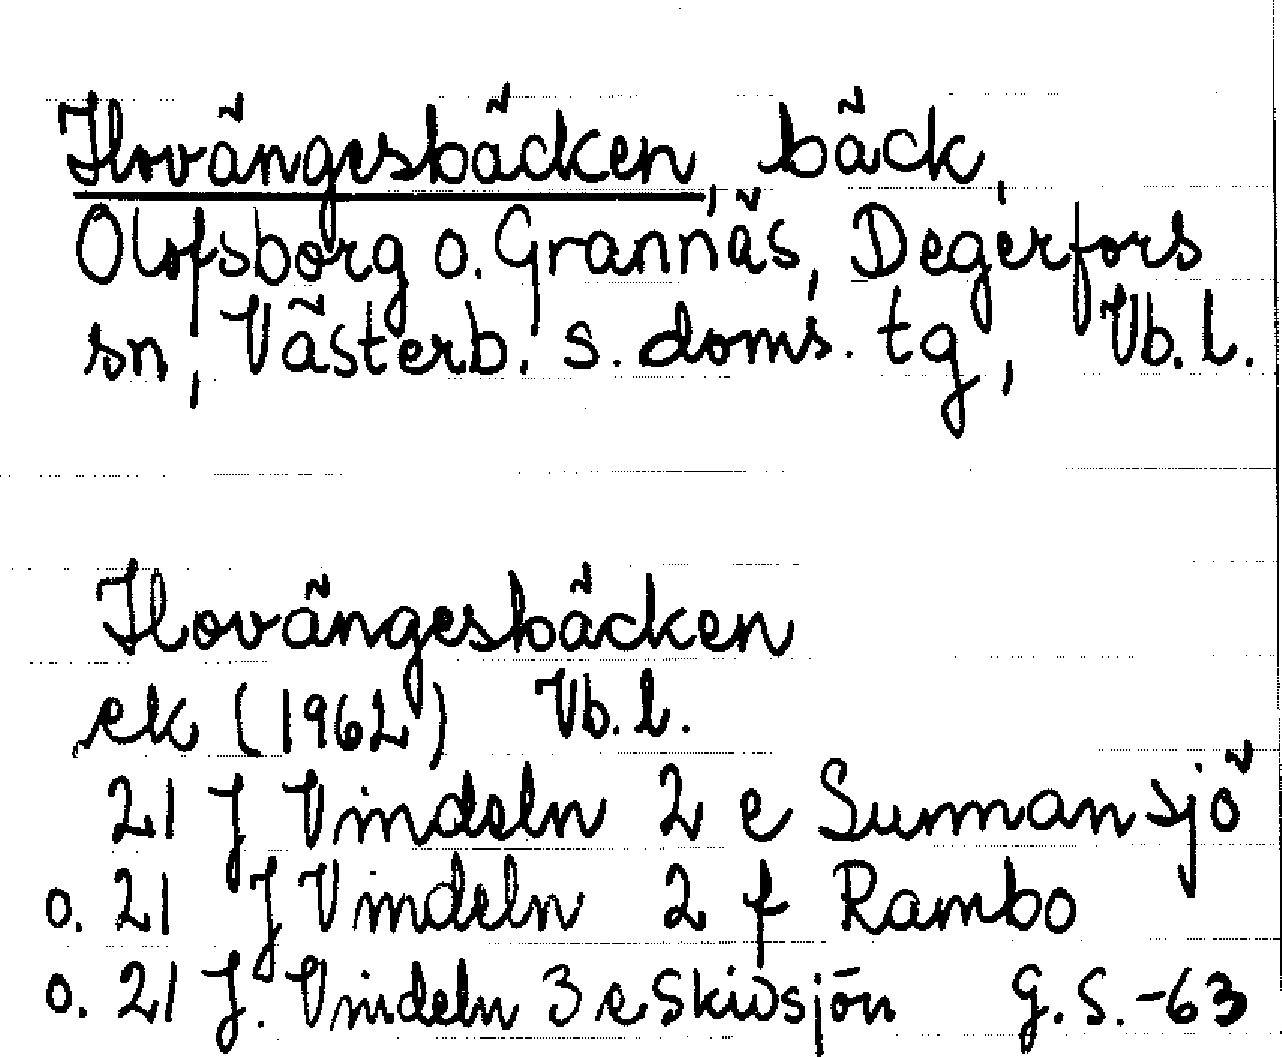 Hovängesbäcken, bäck,
Olofsborg o. Grannäs, Degerfors
sn, Västerb. s. doms. tg, Vb. l.
Hovängesbäcken
ek (1962) Vb. l.
21 J Vindeln 2 e Sunnansjö
o. 21 J Vindeln 2 f Rambo
o. 21 J. Vindeln 3 e Skivsjön G. S. -63